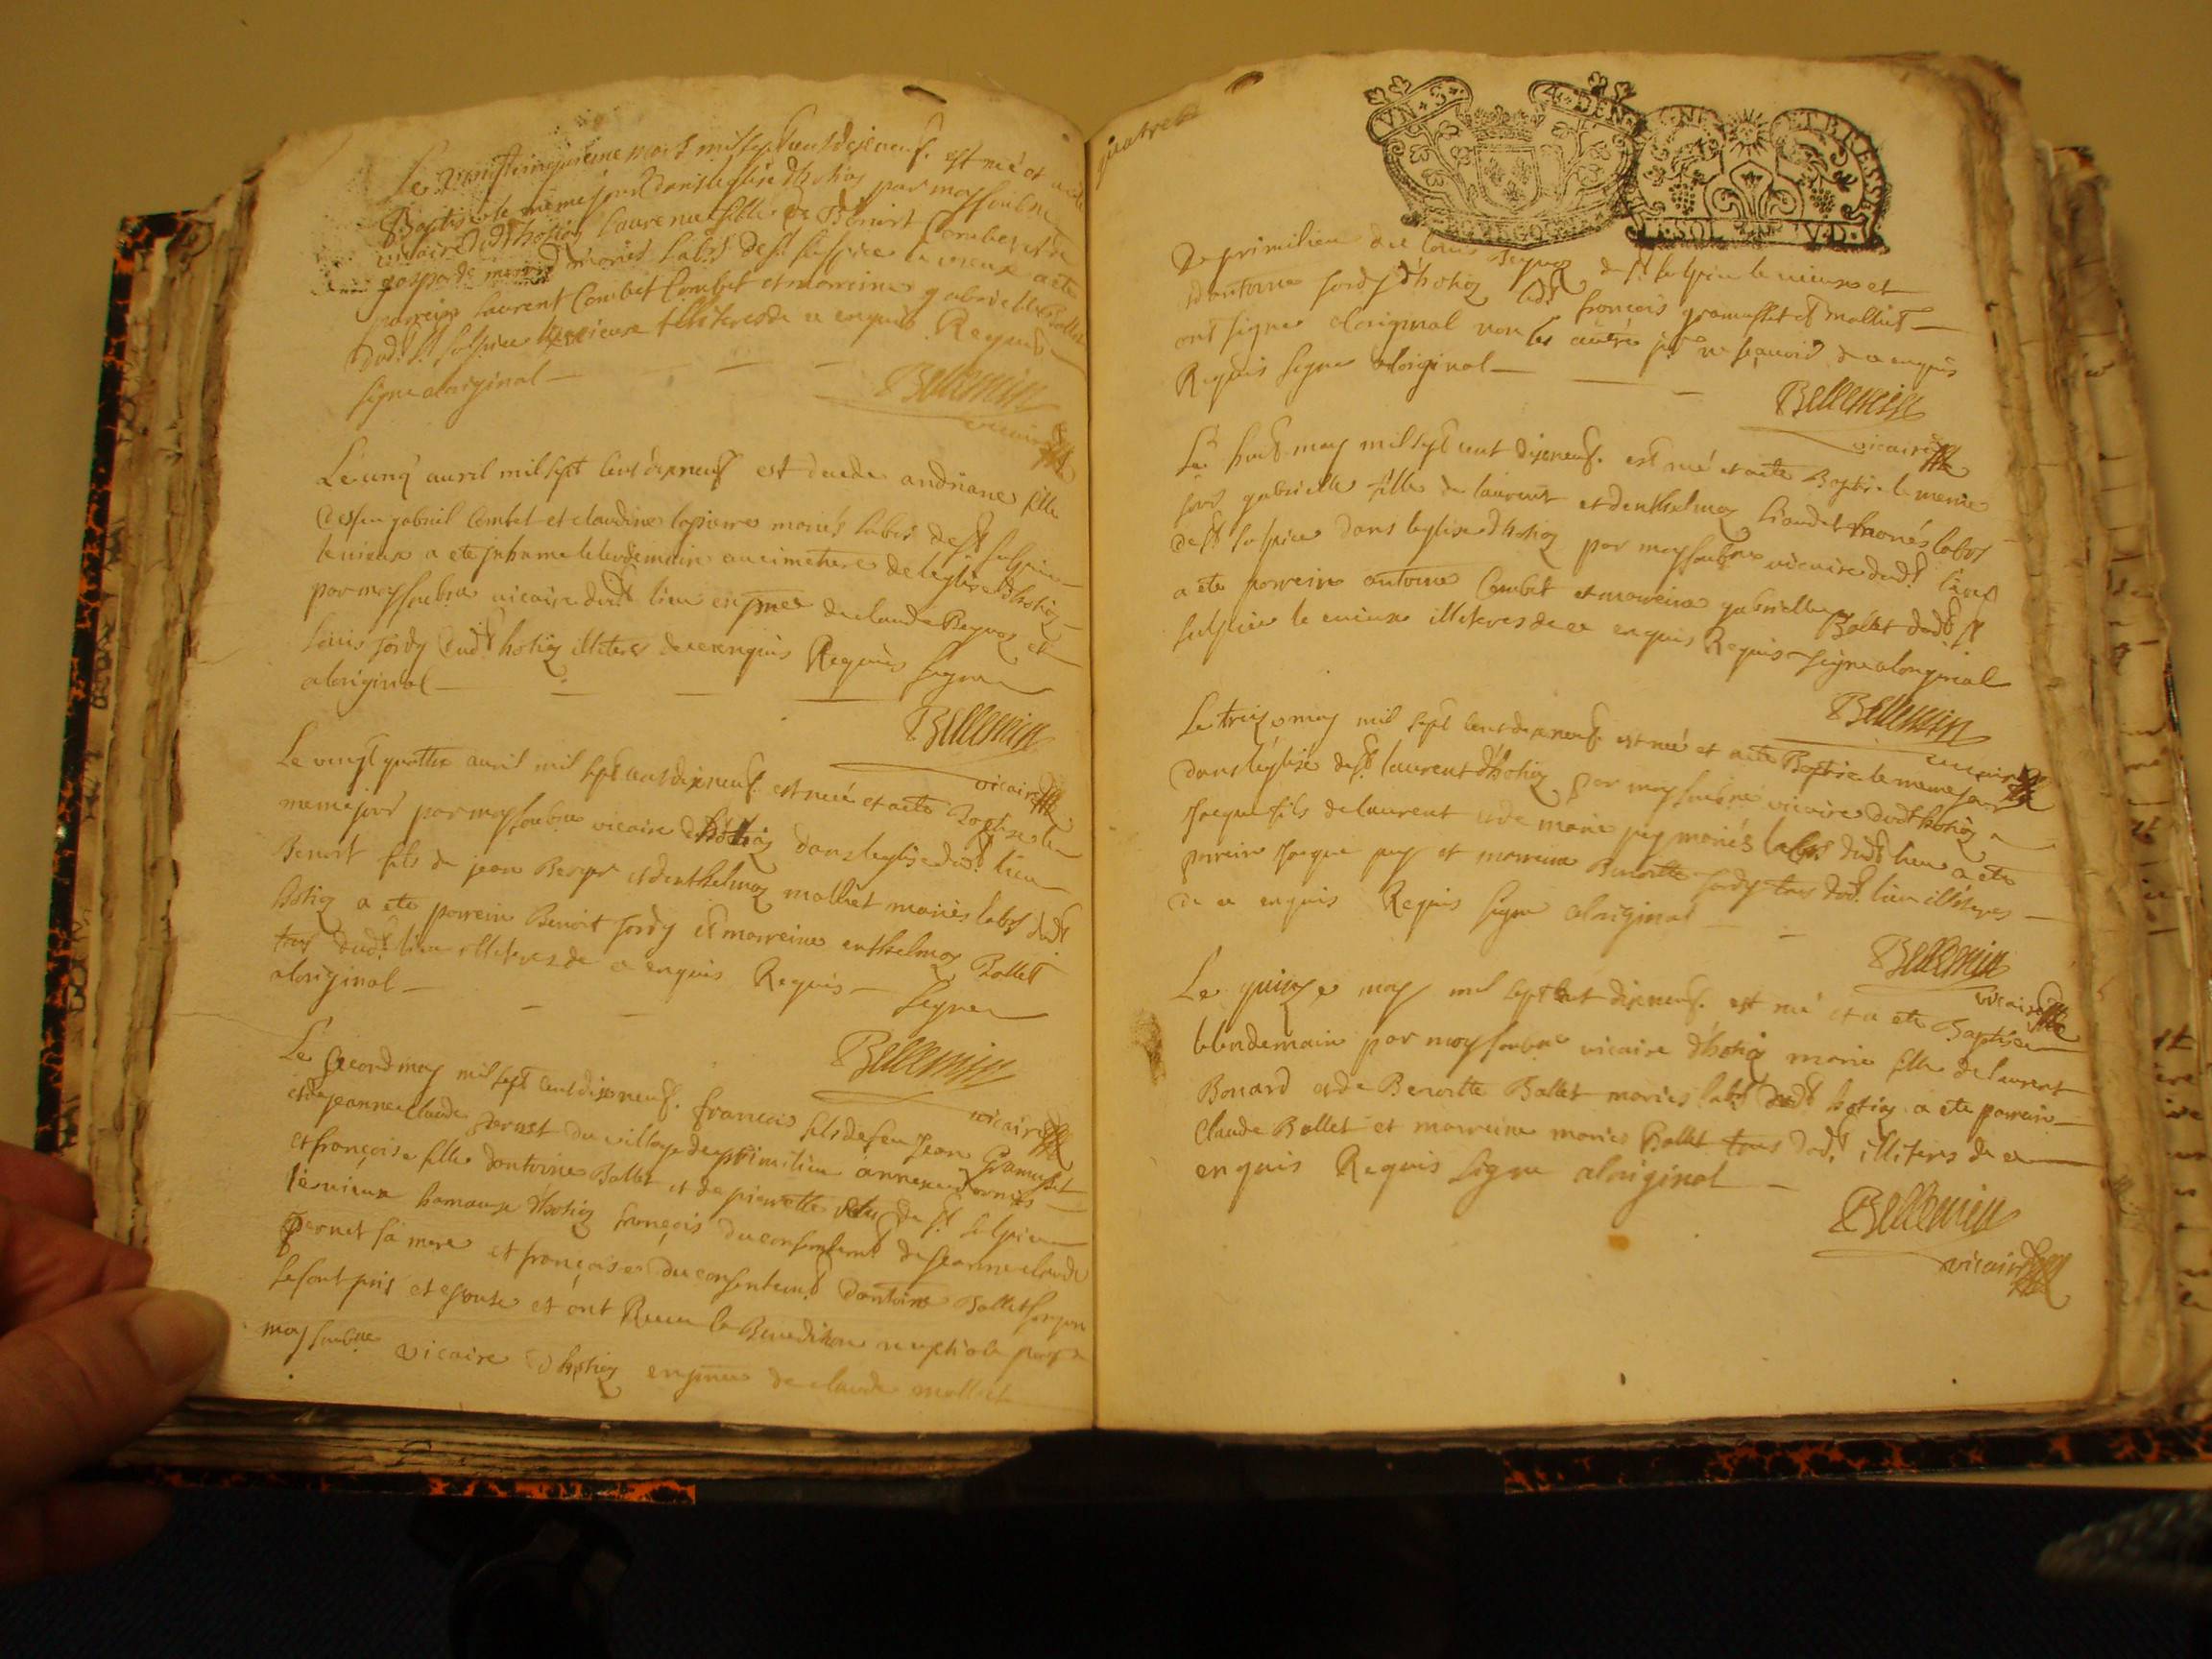 Le vingt cinquieme mars mil sept cent dixneuf est né et a ete
Baptisé le meme jour dans leglise dhotiq par moy soubne
vicaire dud hotiq laurent fille de Benoist Combet et de
maries labs de st sulpice le vieux a ete
parrein laurent Combet Combet et marreine gabrielle Ballet
dud st sulpice le vieux illiteres de ce enquis Requis
signe aloriginal
Bellemin
vicaire
Le cinq avril mil sept cent dixneuf est decede andriane fille
de feu gabriel Combet et claudine lapierre mariés labs de st sulpice
le vieux a ete inhumé le lendemain au cimetiere de leglise dhotiq
par moy soubne vicaire dud lieu en pnce de claude Beyroz et
louis jordy dud hotiq illiteres de ce enquis Requis signe
aloriginal
Bellemin
vicaire
Le vingt quattre avril mil sept cent dixneuf est né et a ete Baptise le
meme jour par moy soubne vicaire dhotiq dans leglise dud lieu
Benoit fils de jean Berger et denthelmoz molliet mariés labs dud
hotiq a ete parrein Benoit jordy et marreine enthelmoz Ballet
tous dud lieu illiteres de ce enquis Requis signe
aloriginal
Bellemin
vicaire
Le second may mil sept cent dixneuf francois fils de feu Jean Gramusset
et de jeanne claude pernet du village de primilieu annexe dornex
et françoise fille dantoine Ballet et de pierrette de st sulpice
le vieux hameaux dhotiq françois du consentemt de jeanne claude
pernet sa mere et françoise du consentemt dantoine Ballet son pere
se sont pris et espousé et ont Receu la Benediction nuptiale par
moy soubne vicaire dhotiq en pnce de claude molliet
De primilieu de louis Beyroz de st sulpice le vieux et
dantoine jordy dhotiq led françois gramusset et molliet
ont signe aloriginal non les autres pour ne sçavoir de ce enquis
Requis signe aloriginal
Bellemin
vicaire
Le huit may mil sept cent dixneuf est né et a ete Baptisé le meme
jour gabrielle fille de laurent et denthelmoz liaudet mariés labs
de st sulpice dans leglise dhotiq par moy soubne vicaire dud lieu
a ete parrein antoine Combet et marreine gabrielle Ballet dud st
sulpice le vieux illiteres de ce enquis Requis signe aloriginal
Bellemin
vicaire
Le treize may mil sept cent dixneuf est né et a ete Baptisé le meme jour
dans léglise de st laurent dhotiq par moy soubne vicaire dud hotiq
Jacque fils de laurent et de marie pey mariés labs dud lieu a ete
parrein Jacque pey et marreine Benoitte jordy tous dud lieu illiteres
de ce enquis Requis signe aloriginal
Bellemin
vicaire
Le quinze may mil sept cent dixneuf est né et a ete Baptisée
le lendemain par moy soubne vicaire dhotiq marie fille de laurent
Bonard et de Benoitte Ballet mariés labs dud hotiq a ete parrein
Claude Ballet et marreine marie Ballet tous dud illiteres de ce
enquis Requis signe aloriginal
Bellemin
vicaire